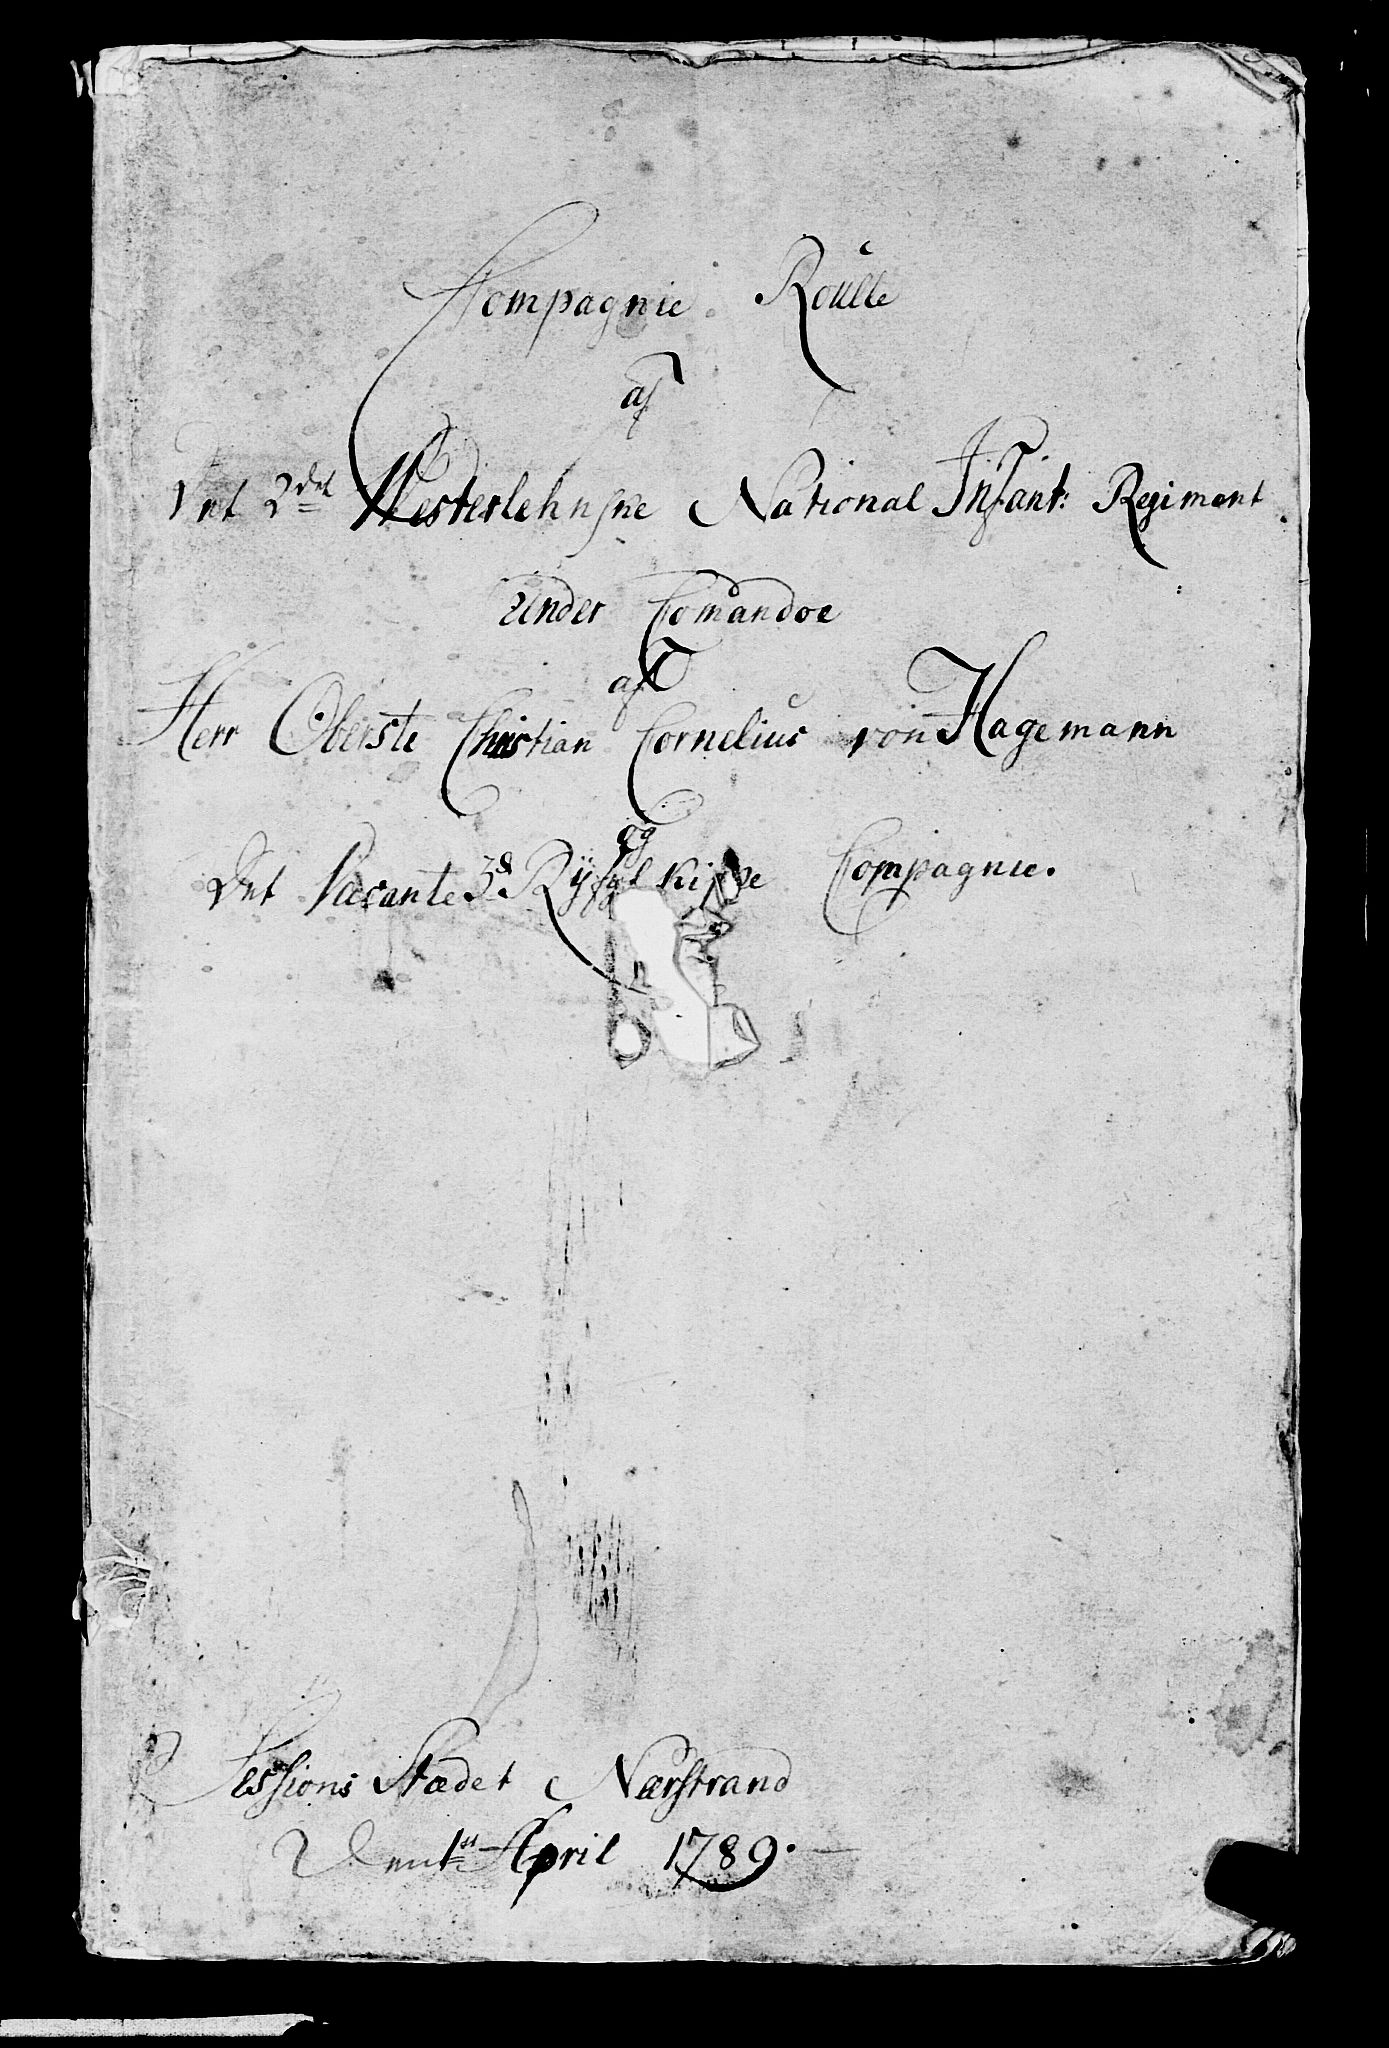 Compagnie Roulle
af
Det 2det Westerlehnske National Infant: Regiment
Under Comandoe
af
Herr Oberste Christian Cornelius von Hagemann
og
Det Vacante 3de Ryfylkiske Compagnie.
Sessions Stædet Nærstrand
Den 1ste April 1789.